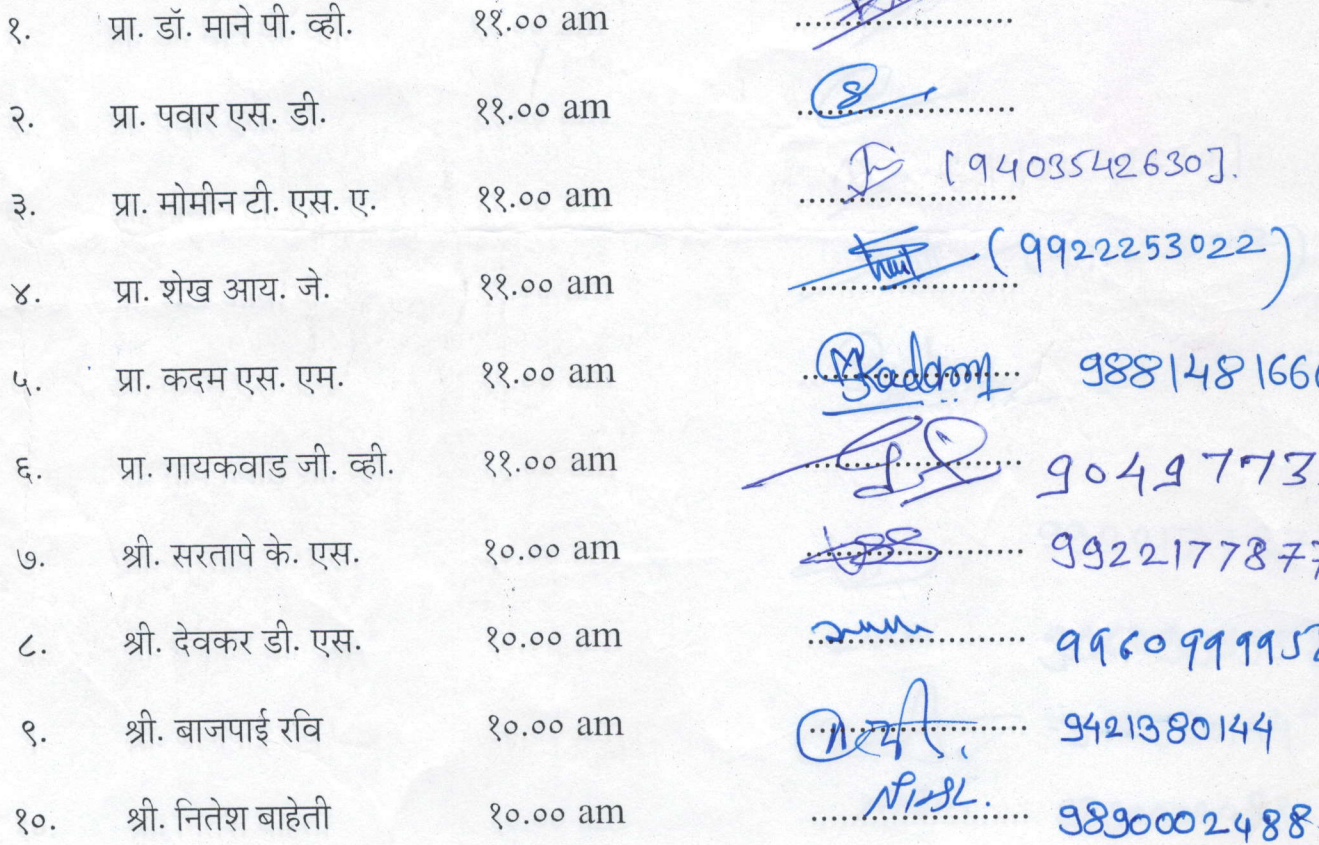 १. प्रा. डॉ. माने पी. व्ही. ११.०० am ....................
२. प्रा. पवार एस. डी. ११.०० am ....................
३. प्रा. मोमीन टी. एस. ए. ११.०० am .................... [9403542630].
४. प्रा. शेख आय. जे. ११.०० am .................... (9922253022)
५. प्रा. कदम एस. एम. ११.०० am .................... Kadam 988148166
६. प्रा. गायकवाड जी. व्ही. ११.०० am .................... 9049773
७. श्री. सरतापे के. एस. १०.०० am .................... 992217787
८. श्री. देवकर डी. एस. १०.०० am .................... 996099995
९. श्री. बाजपाई रवि १०.०० am .................... 9421380144
१०. श्री. नितेश बाहेती १०.०० am .................... 9890002488